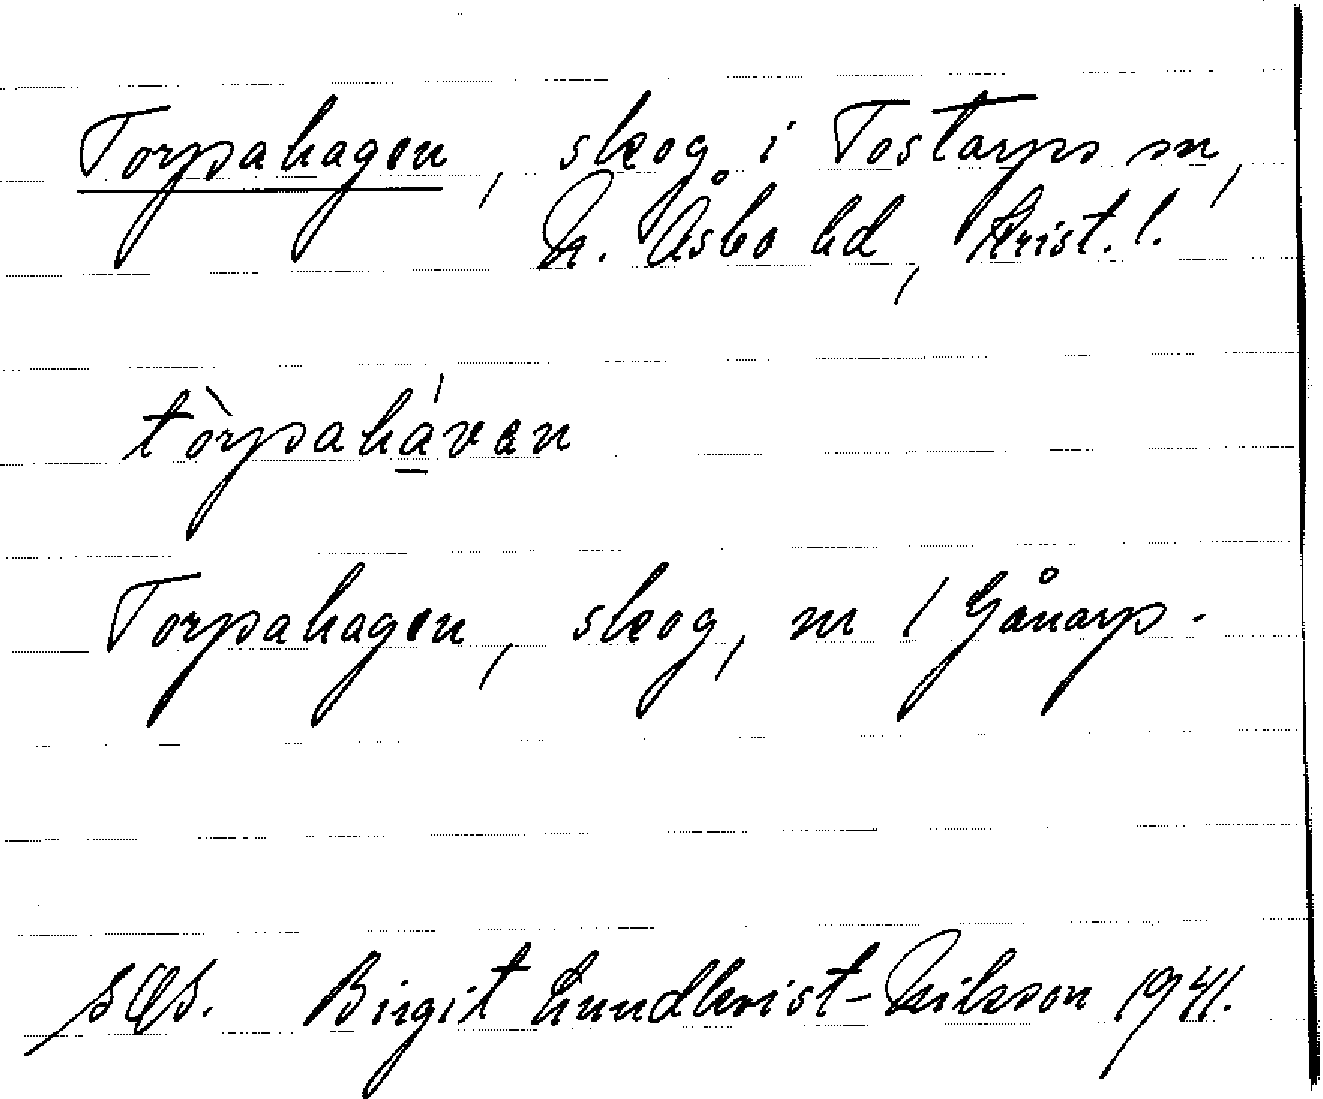 Torpahagen, skog i Tostarps sn,
N. Åsbo hd, Krist. l.
tòrpahá̱van
Torpahagen, skog, sn / Gånarp.
Birgit Lundkvist-Nilsson 1941.